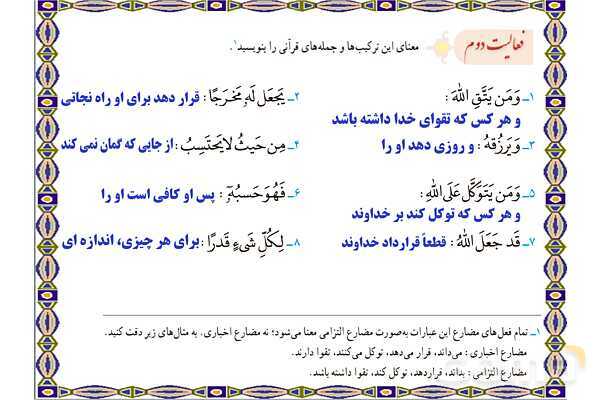 فعالیت دوم
معنای این ترکیب‌ها و جمله‌های قرآنی را بنویسید.۱
۱ـ وَمَن يَتَّقِ اللّٰهَ :
و هر کس که تقوای خدا داشته باشد
۲ـ يَجعَل لَهُۥ مَخرَجًا : قرار دهد برای او راه نجاتی
۳ـ وَيَرزُقهُ : و روزی دهد او را
۴ـ مِن حَيثُ لا يَحتَسِبُ : از جایی که گمان نمی کند
۵ـ وَمَن يَتَوَكَّل عَلَى اللّٰهِ :
و هر کس که توکل کند بر خداوند
۶ـ فَهُوَ حَسبُهُۥٓ : پس او کافی است او را
۷ـ قَد جَعَلَ اللّٰهُ : قطعاً قرارداد خداوند
۸ـ لِكُلِّ شَیءٍ قَدرًا : برای هر چیزی، اندازه ای
۱ـ تمام فعل‌های مضارع این عبارات به‌صورت مضارع التزامی معنا می‌شود؛ نه مضارع اخباری. به مثال‌های زیر دقت کنید.
مضارع اخباری : می‌داند، قرار می‌دهد، توکل می‌کنند، تقوا دارند.
مضارع التزامی : بداند، قراردهد، توکل کند، تقوا داشته باشد.